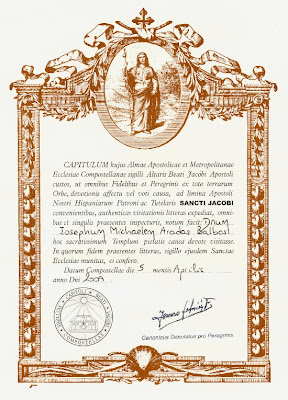 CAPITULUM hujus Almae Apostolicae et Metropolitanae
Ecclesiae Compostellanae sigilli Altaris Beati Jacobi Apostoli
custos, ut omnibus Fidelibus et Peregrinis ex toto terrarum
Orbe, devotionis affectu vel voti causa, ad limina Apostoli
Nostri Hispaniarum Patroni ac Tutelaris SANCTI JACOBI
convenientibus, authenticas visitationis litteras expediat, omni-
bus et singulis praesentes inspecturis, notum facit: Dnum
Iosephum Michaelem Aradas Balbas
hoc sacratissimum Templum pietatis causa devote visitasse.
In quorum fidem praesentes litteras, sigillo ejusdem Sanctae
Ecclesiae munitas, ei confero.
Datum Compostellae die 5 mensis Aprilis
anno Dni 2009
Canonicus Deputatus pro Peregrinis